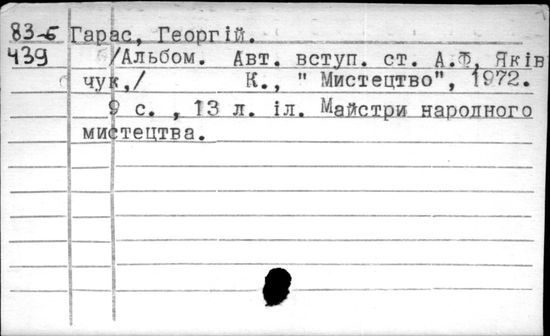 83-5 Гарас, Георгій.
439 /Альбом. Авт. вступ. ст. А.Ф. Яків
чук,/ К., " Мистецтво", 1972.
9 с. , 13 л. іл. Майстри народного
мистецтва.